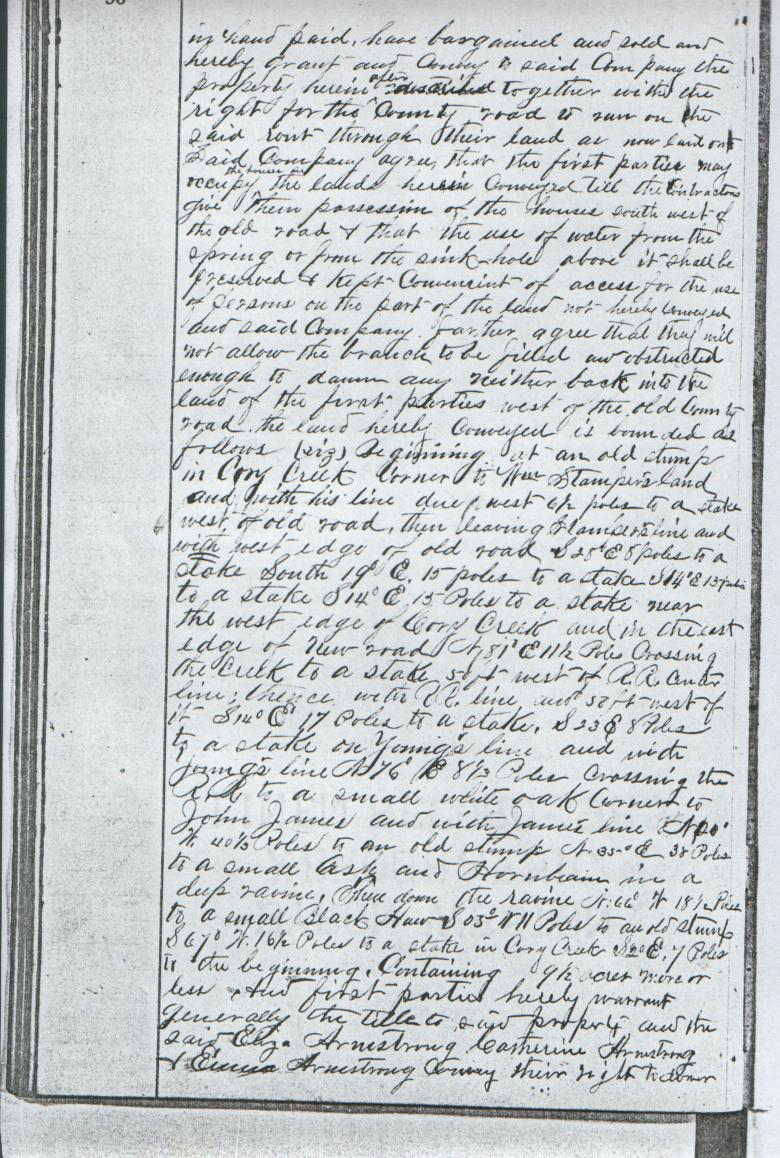 in hand paid, have bargained and sold and
hereby grant and Convey to said Company the
property herein after described together with the
right for the County road to run on the
said rout through their land as now laid out
Said Company agree, that the first parties may
occupy the houses on the lands herein Conveyed till the Contractors
give them possession of the houses south west of
the old road & that the use of water from the
spring or from the sink-hole above it shall be
preserved & kept Convenient of access for the use
of persons on the part of the land not hereby conveyed
and said Company farther agree that they will
not allow the branch to be filled or obstructed
enough to damm any back into the
land of the first parties west of the old County
road. the land hereby Conveyed is bounded as
follows (viz) Beginning at an old stump
in Cory Creek Corner to Wm Stampers land
and with his line due west 6½ poles to a stake
west of old road, then leaving Stampers line and
with west edge of old road S 25° E 8 poles to a
stake South 19° E. 15 poles to a stake S 14° E 13 poles
to a stake S 14° E, 15 Poles to a stake near
the west edge of Cory Creek and in the east
edge of New road N 81° E 11½ Poles Crossing
the Creek to a stake 50 ft west of R.R. Center
line; thence with R.R. line and 50 ft west of
it S 14° E 17 Poles to a stake. S 23 E 8 Poles
to a stake on Young's line and with
Young's line N 76° E 8½ Poles Crossing the
R.R. to a small white oak Corner to
John James and with James line
W 40½ Poles to an old stump N. 35° E 38 Poles
to a small Ash and Hornbeam in a
deep ravine, Then down the ravine N. 66° W 18½ Poles
to a small Black Haw S 03° W 11 Poles to an old stump
S 67° W. 16½ Poles to a stake in Cory Creek S 2° E. 7 Poles
to the beginning. Containing 9½ acres more or
less And first parties hereby warrant
generally the title to said property and the
said Eliza Armstrong Catherine Armstrong
& Emma Armstrong Convey their right to dower